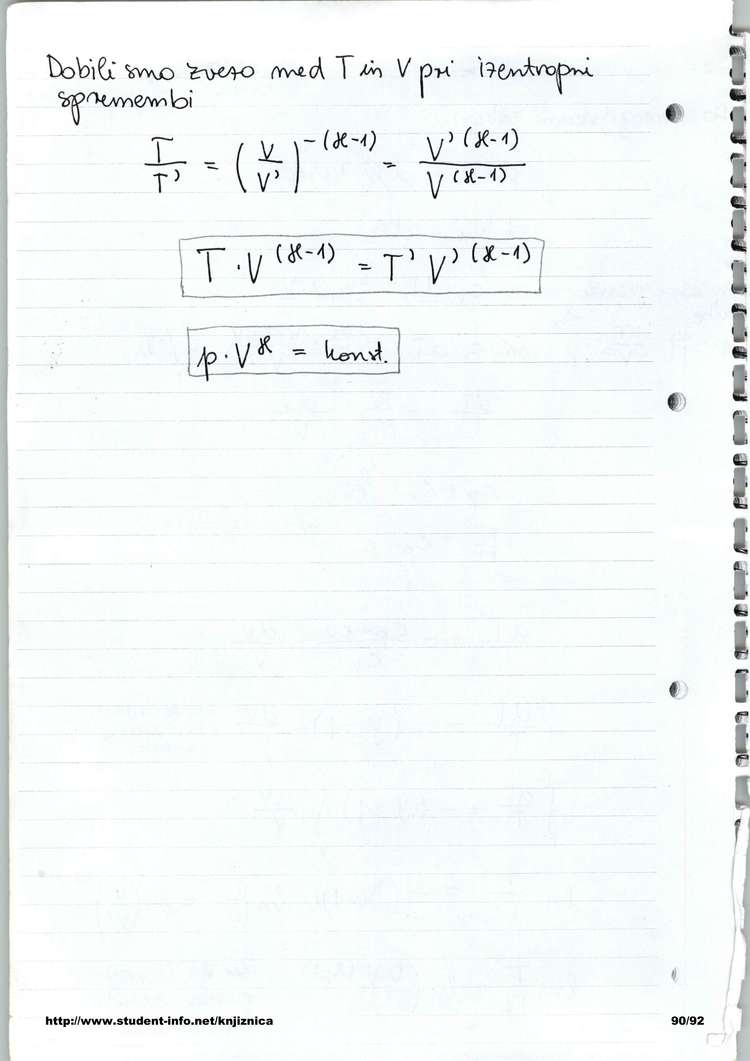 Dobili smo zvezo med T in V pri izentropni
spremembi
T/T' = (V/V')^-(ϰ-1) = V'^(ϰ-1)/V^(ϰ-1)
T · V^(ϰ-1) = T' V'^(ϰ-1)
p · V^ϰ = konst.
http://www.student-info.net/knjiznica 90/92